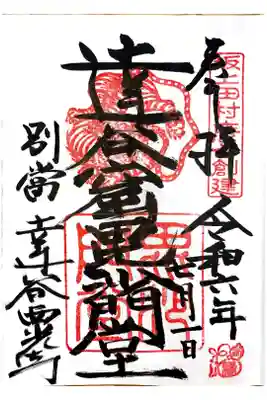 奉拝
坂上田村麿創建
令和六年
七月一日
達谷窟毘沙門堂
別當 達谷西光寺